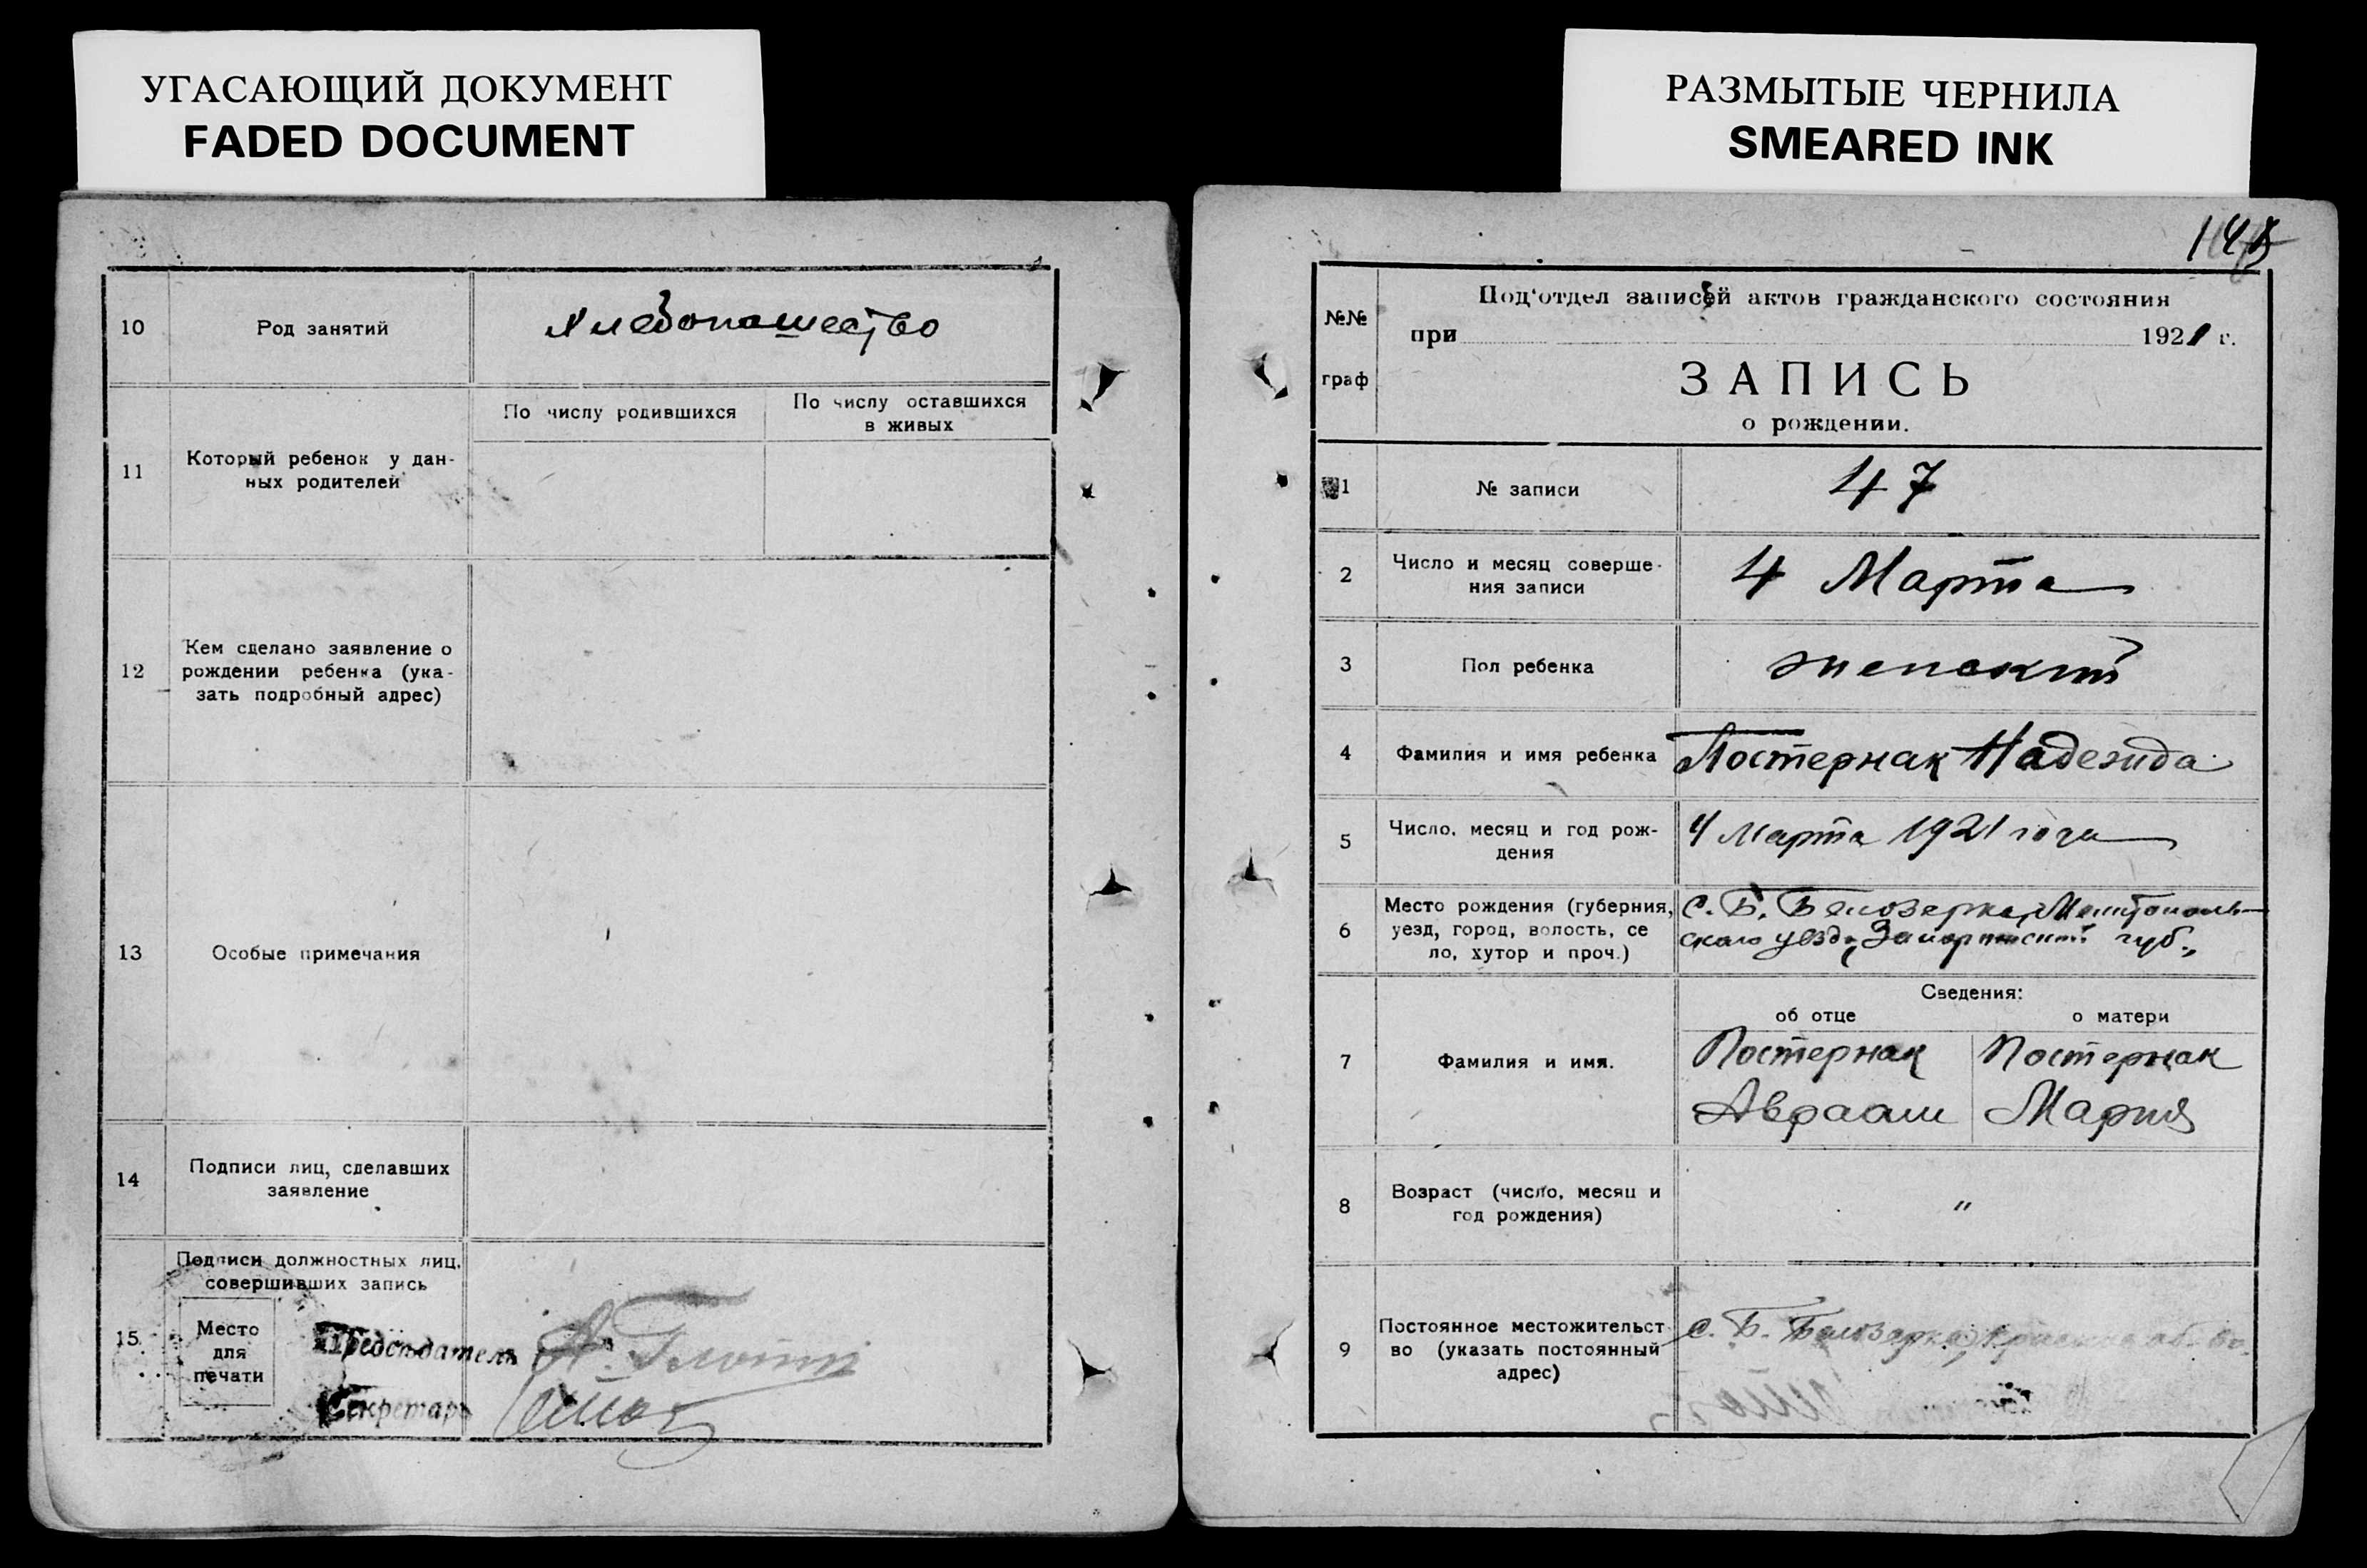 УГАСАЮЩИЙ ДОКУМЕНТ
FADED DOCUMENT
10
Род занятий
Хлебопашество
11
Который ребенок у дан-
ных родителей
По числу родившихся
По числу оставшихся
в живых
12
Кем сделано заявление о
рождении ребенка (ука-
зать подробный адрес)
13
Особые примечания
14
Подписи лиц, сделавших
заявление
15
Подписи должностных лиц,
совершивших запись
Место
для
печати
Председатель
Секретарь
РАЗМЫТЫЕ ЧЕРНИЛА
SMEARED INK
№№
граф
Под'отдел записей актов гражданского состояния
при 1921 г.
ЗАПИСЬ
о рождении.
1
№ записи
47
2
Число и месяц соверше-
ния записи
4 Марта
3
Пол ребенка
женский
4
Фамилия и имя ребенка
Постернак Надежда
5
Число, месяц и год рож-
дения
4 Марта 1921 года
6
Место рождения (губерния,
уезд, город, волость, се
ло, хутор и проч.)
С. Б. Белозерка, Мелитополь-
ского уезда, Запорожской губ.,
Сведения:
об отце
о матери
7
Фамилия и имя.
Постернак
Авраам
Постернак
Мария
8
Возраст (число, месяц и
год рождения)
"
9
Постоянное местожительст
во (указать постоянный
адрес)
С. Б. Белозерка,